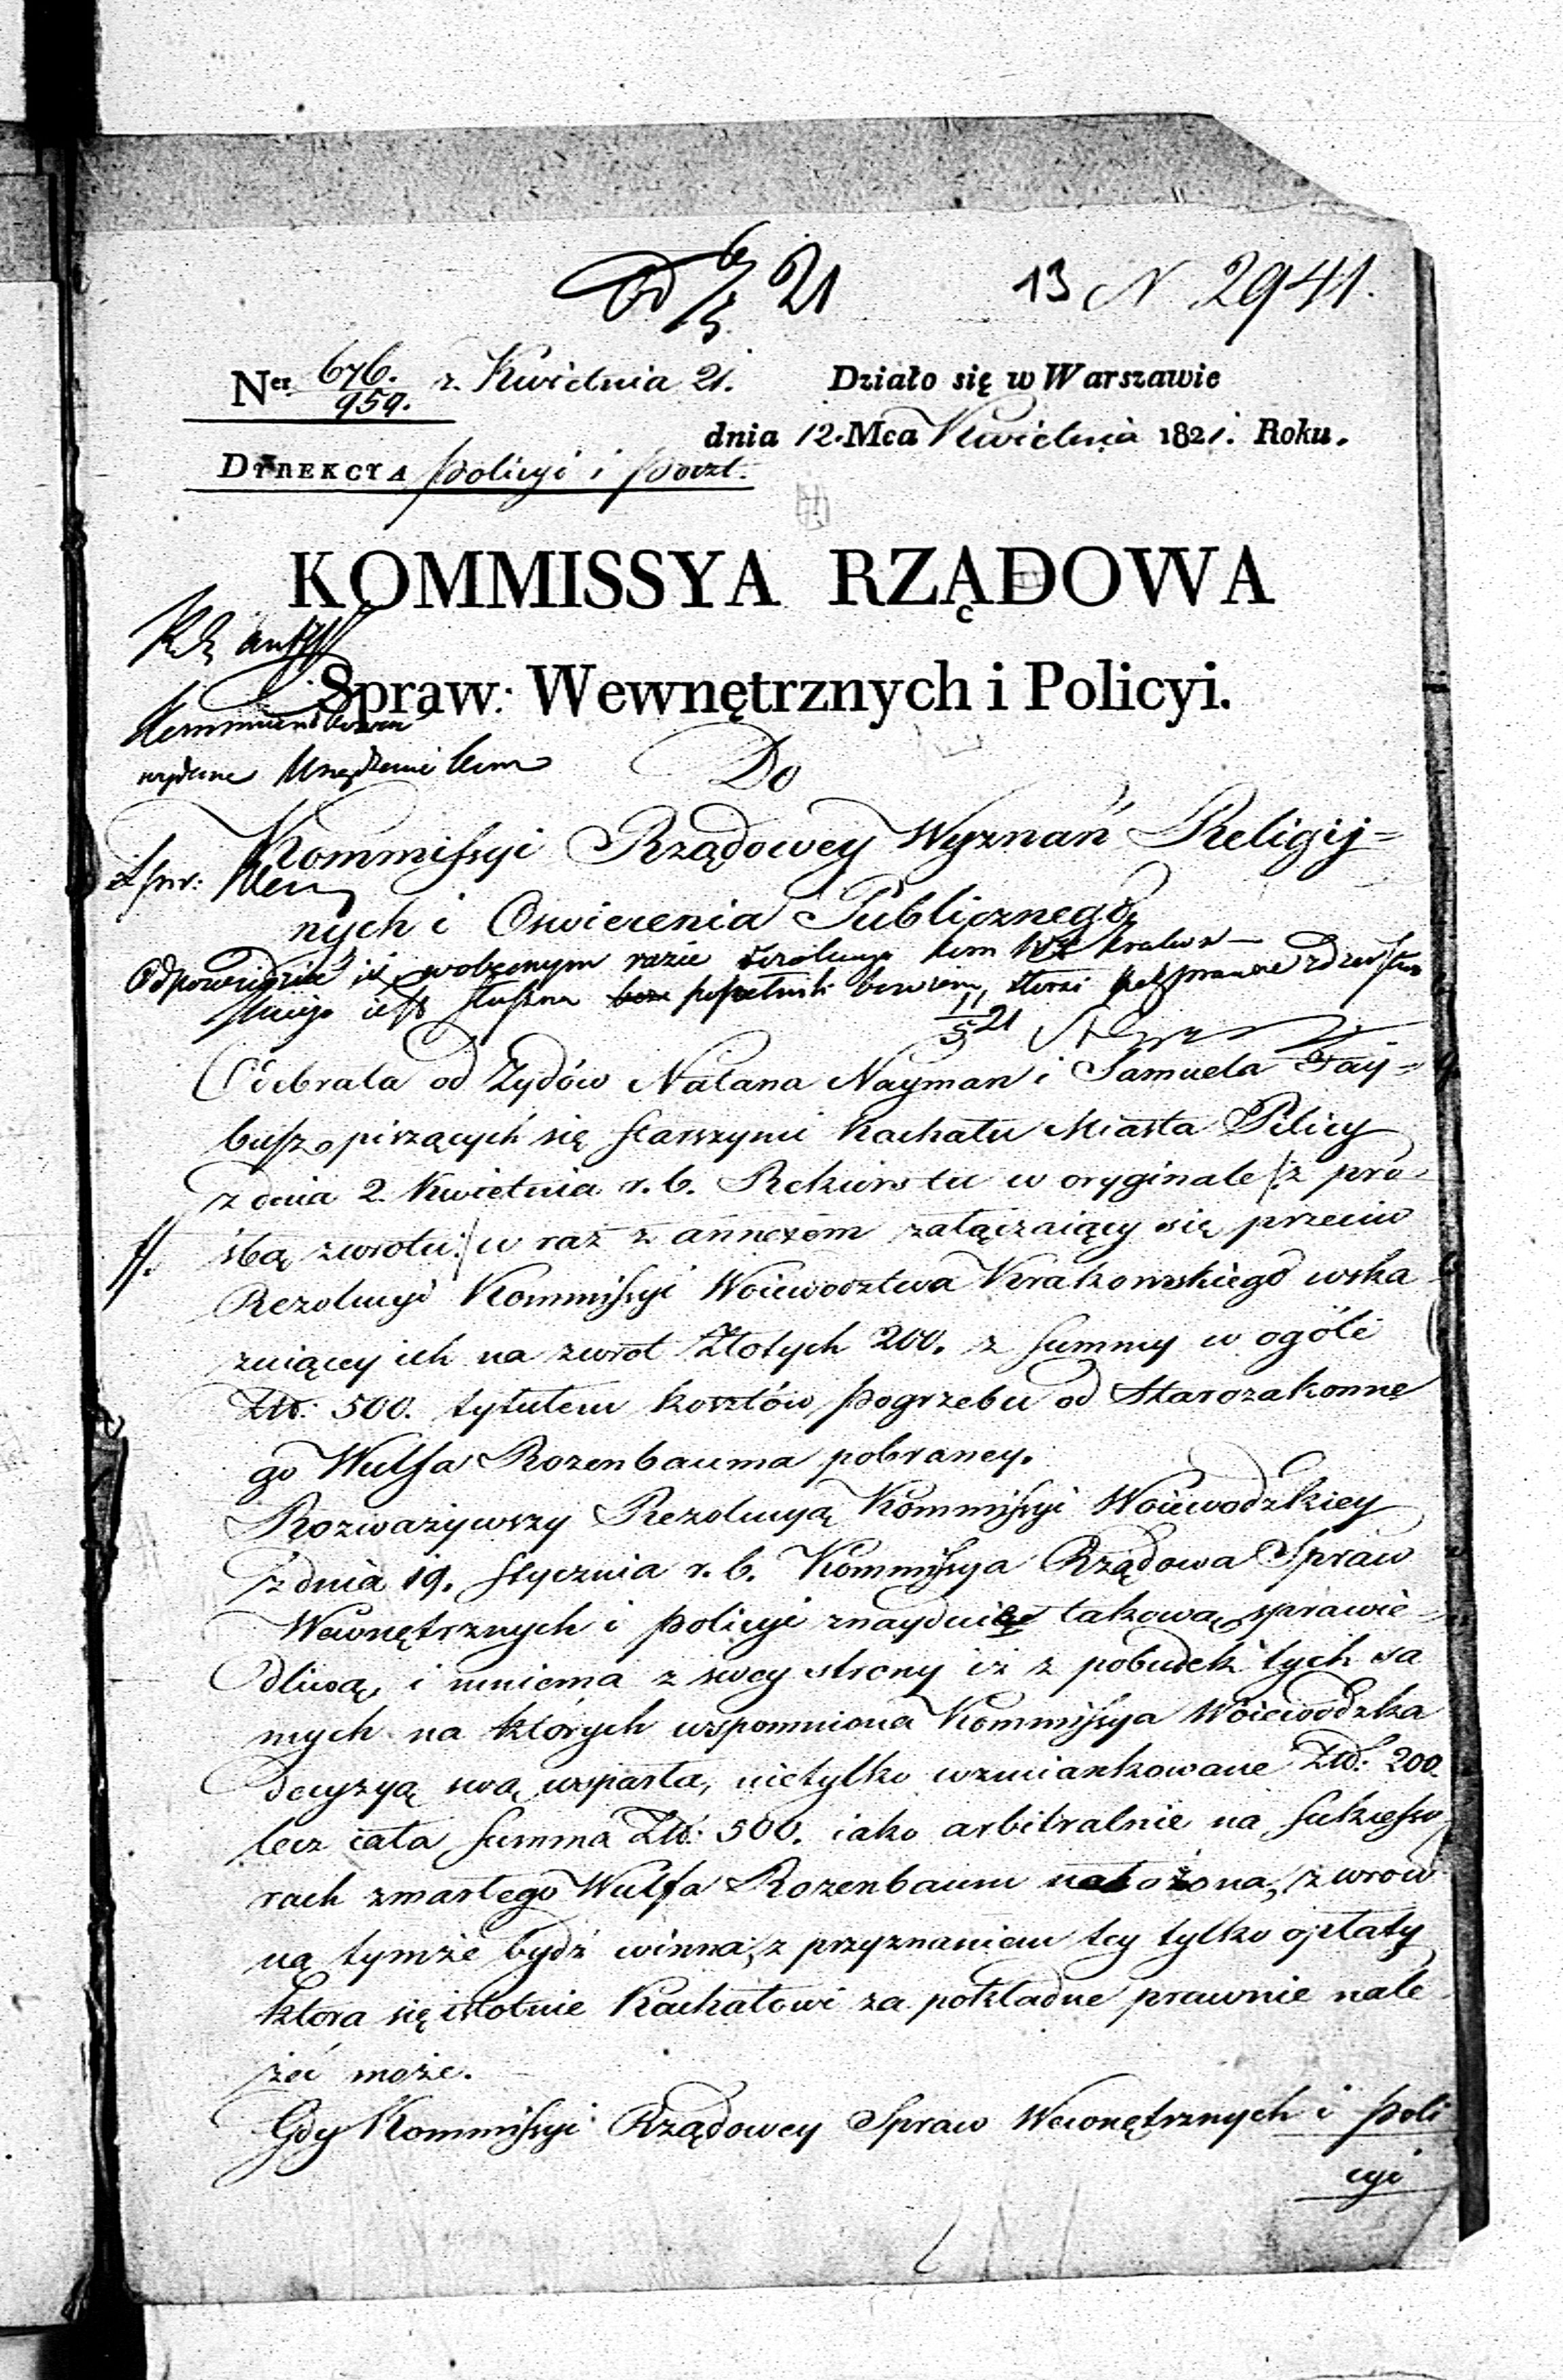 Od 6/5 21 13 N 2941.
Ner. 676./959. z. Kwietnia 21. Działo się w Warszawie
dnia 12. Mca Kwietnia 1821. Roku.
DYREKCYA Policyi i Poczt.
KOMMISSYA RZĄDOWA
Spraw: Wewnętrznych i Policyi.
Do
Kommissyi Rządowey Wyznań Religij=
nych i Oswiecenia Publicznego
Odpowiedzieć iż w obecnym razie
1/5 21
Odebrała od Żydów Natana Nayman i Samuela Fay=
busz, piszących się starszymi Kachału Miasta Pilicy
z dnia 2. Kwietnia r. b. Rekurs tu w oryginale /: z pro=
śbą zwrotu :/ w raz z annexem załączaiący się przeciw
Rezolucyi Kommissyi Woiewodztwa Krakowskiego wska
zuiącey ich na zwrot Złotych 200. z summy w ogóle
Złt: 500. tytułem kosztów pogrzebu od Starozakonne
go Wulfa Rozenbauma pobraney.
Rozważywszy Rezolucyą Kommissyi Woiewodzkiey
z dnia 19. Stycznia r. b. Kommissya Rządowa Spraw
Wewnętrznych i Policyi znayduie takową sprawie=
dliwą, i mniema z swey strony iż z pobudek tych sa
mych na których wspomniona Kommissya Woiewodzka
decyzyą swą wsparła, nietylko wzmiankowane Złt: 200.
lecz cała summa Złt: 500. iako arbitralnie na sukcesso
rach zmarłego Wulfa Rozenbaum nałożona, zwróco
na tymże bydź winna, z przyznaniem tey tylko opłaty
ktora się istotnie Kachałowi za pokładne prawnie nale
żeć może.
Gdy Kommissyi Rządowey Spraw Wewnętrznych i Poli
cyi